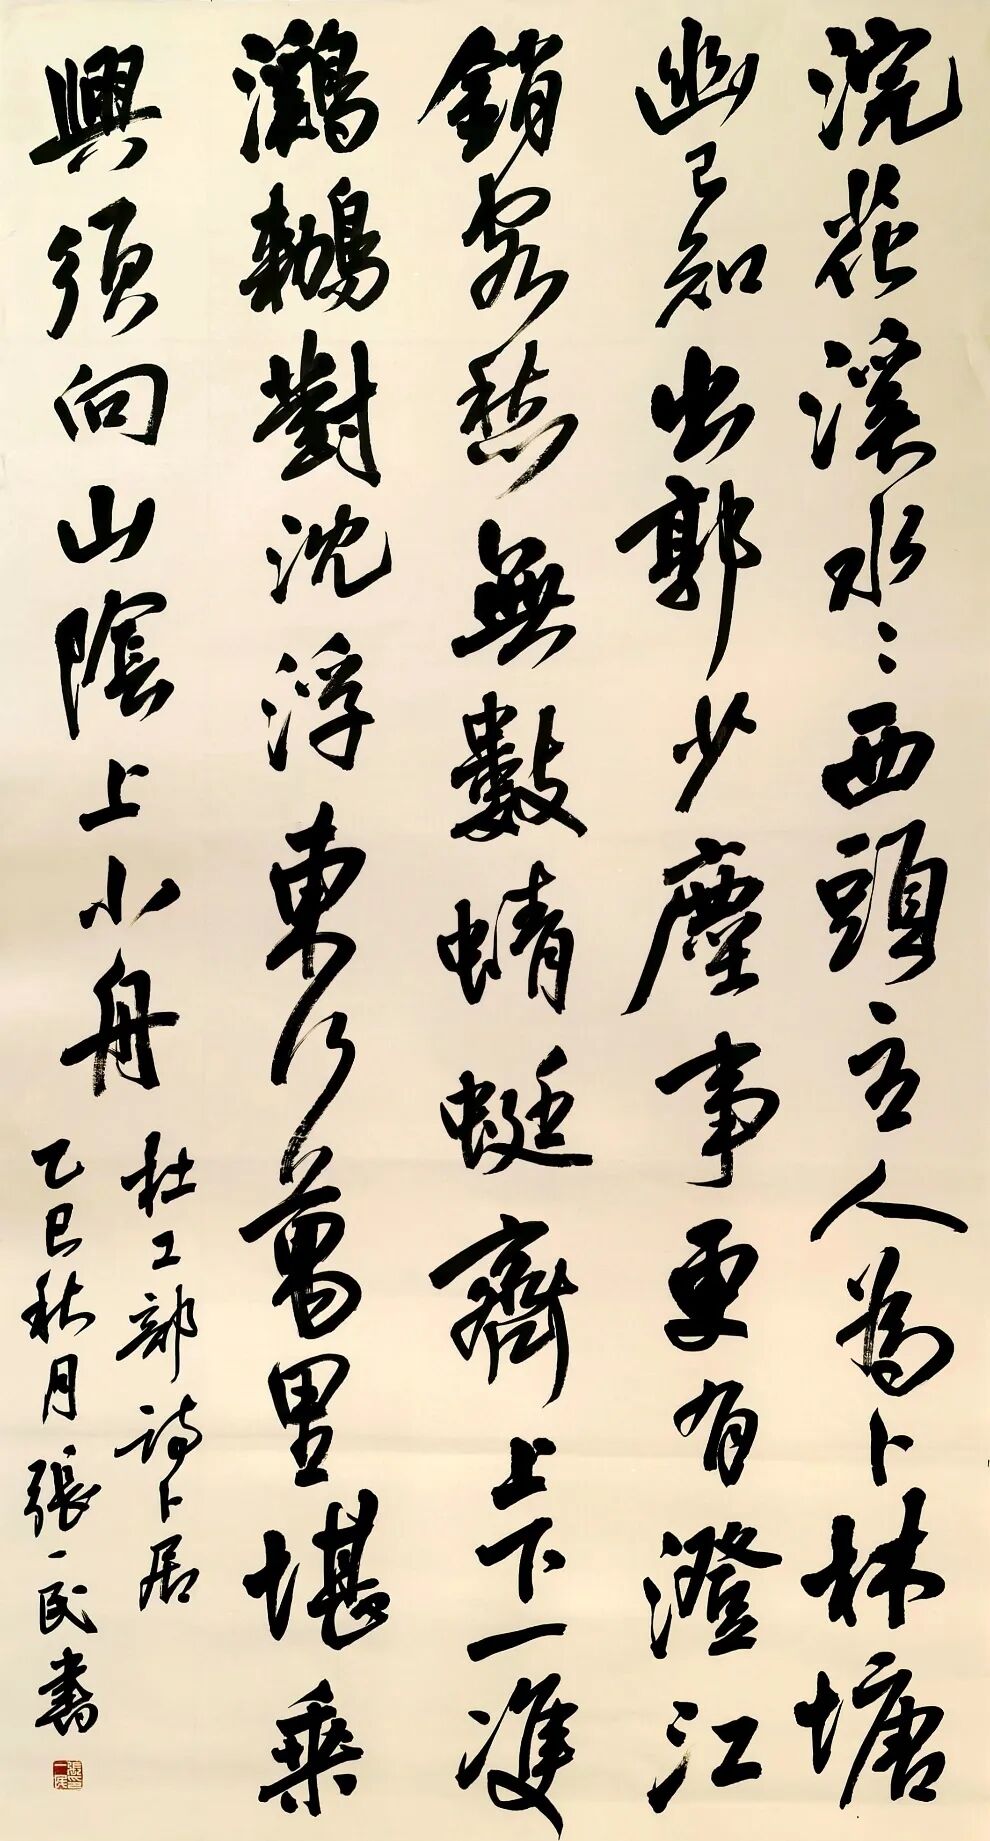 浣花溪水〻西頭主人為卜林塘
幽已知出郭少塵事更有澄江
銷客愁無數蜻蜓齊上下一雙
鸂鶒對沈浮東行萬里堪乘
興須向山陰上小舟
杜工部詩卜居
乙巳秋月張一民書